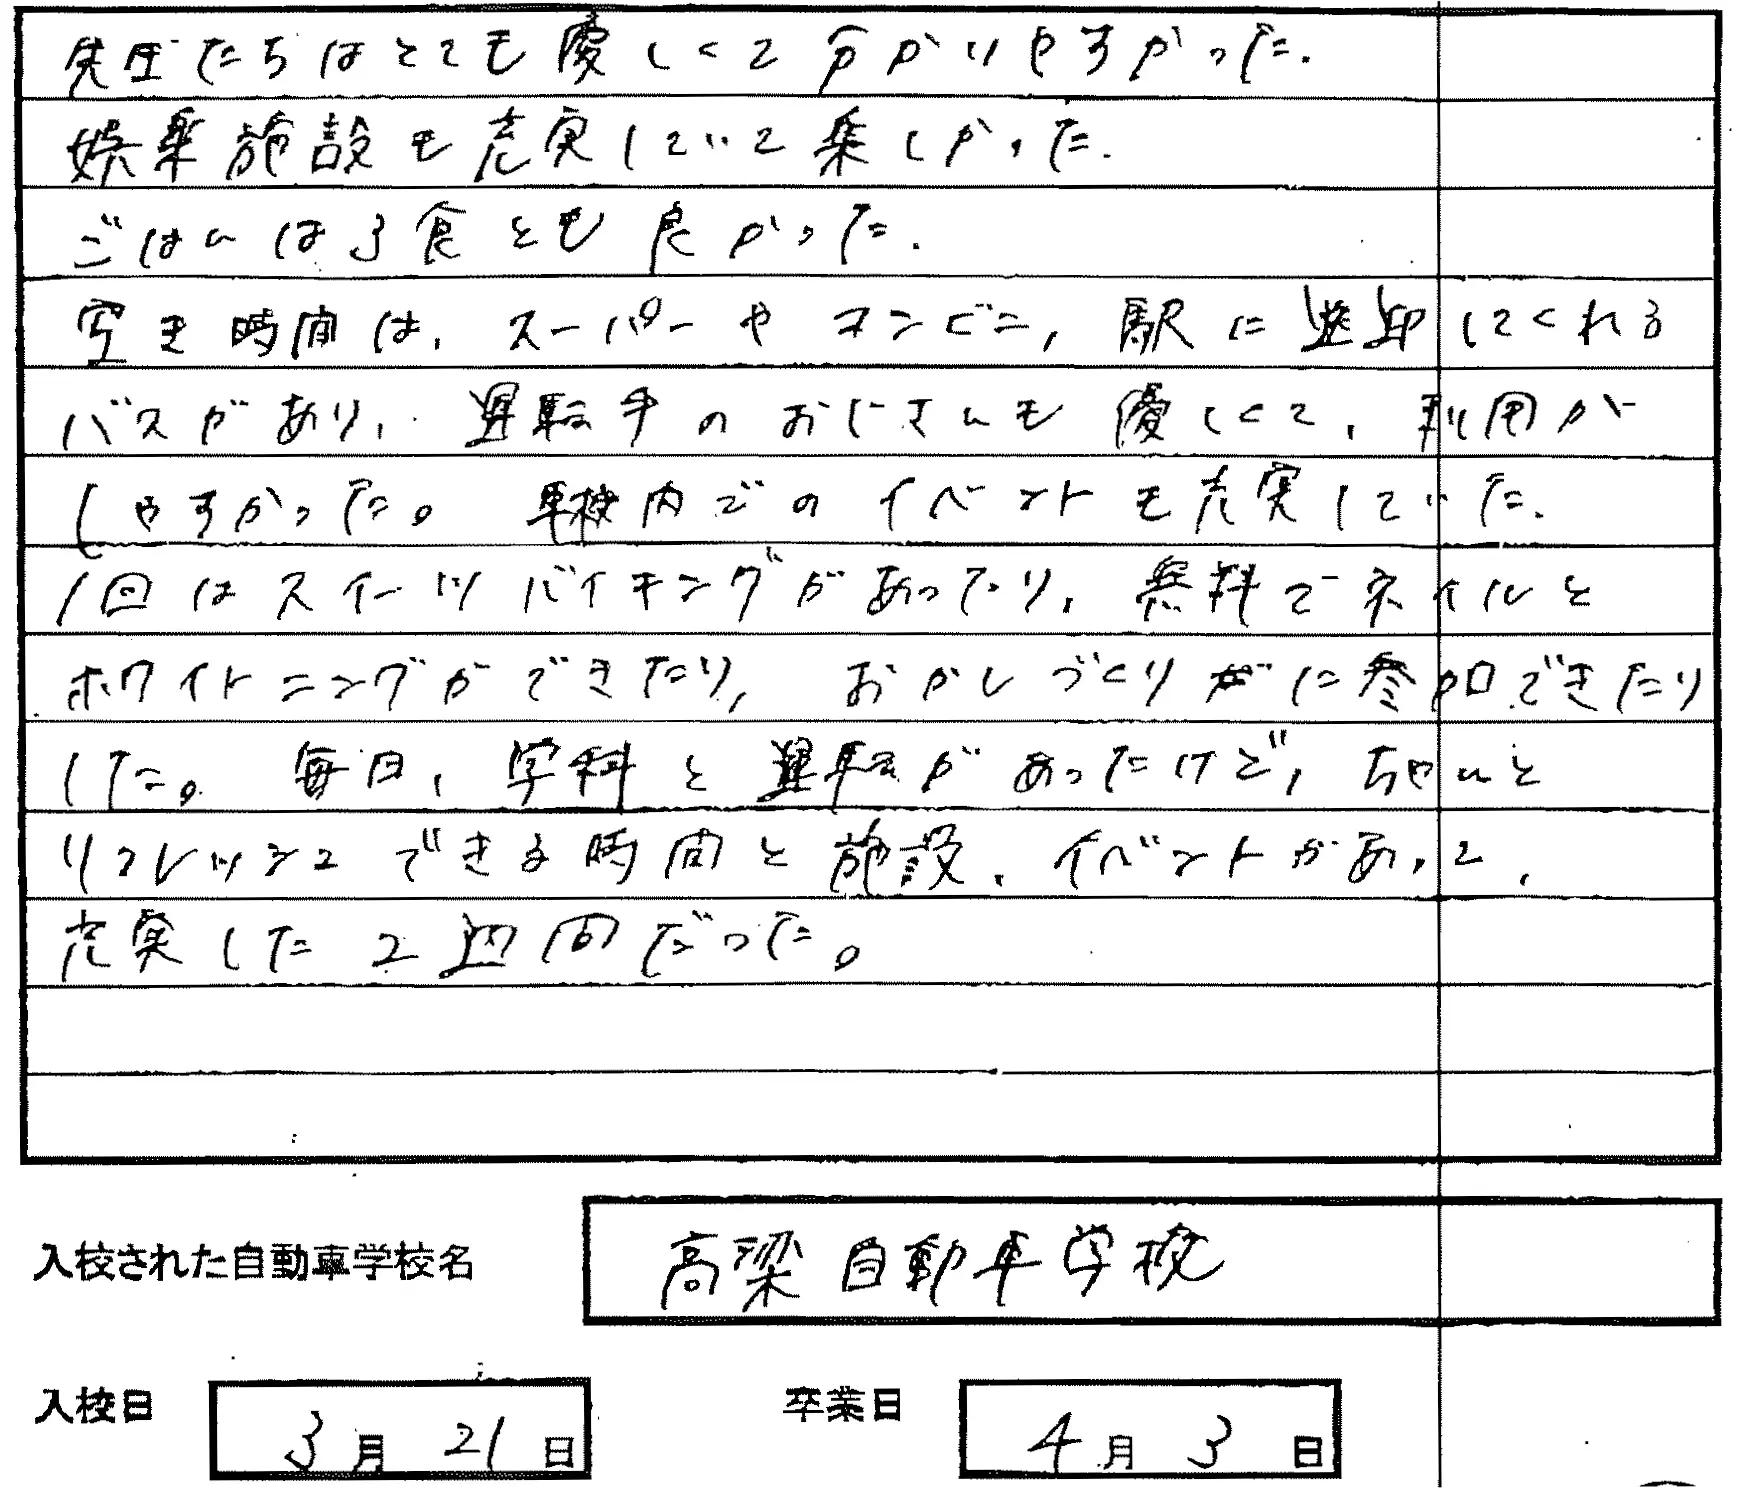 先生たちはとても優しくて分かりやすかった.
娯楽施設も充実していて楽しかった.
ごはんは3食とも良かった.
空き時間は、スーパーやコンビニ、駅に送迎してくれる
バスがあり、運転手のおじさんも優しくて、利用が
しやすかった。車校内でのイベントも充実していた.
1回はスイーツバイキングがあったり、無料でネイルと
ホワイトニングができたり、おかしづくりに参加できたり
した。毎日、学科と運転があったけど、ちゃんと
リフレッシュできる時間と施設、イベントがあって、
充実した2週間だった。
入校された自動車学校名 高梁自動車学校
入校日 3月21日 卒業日 4月3日